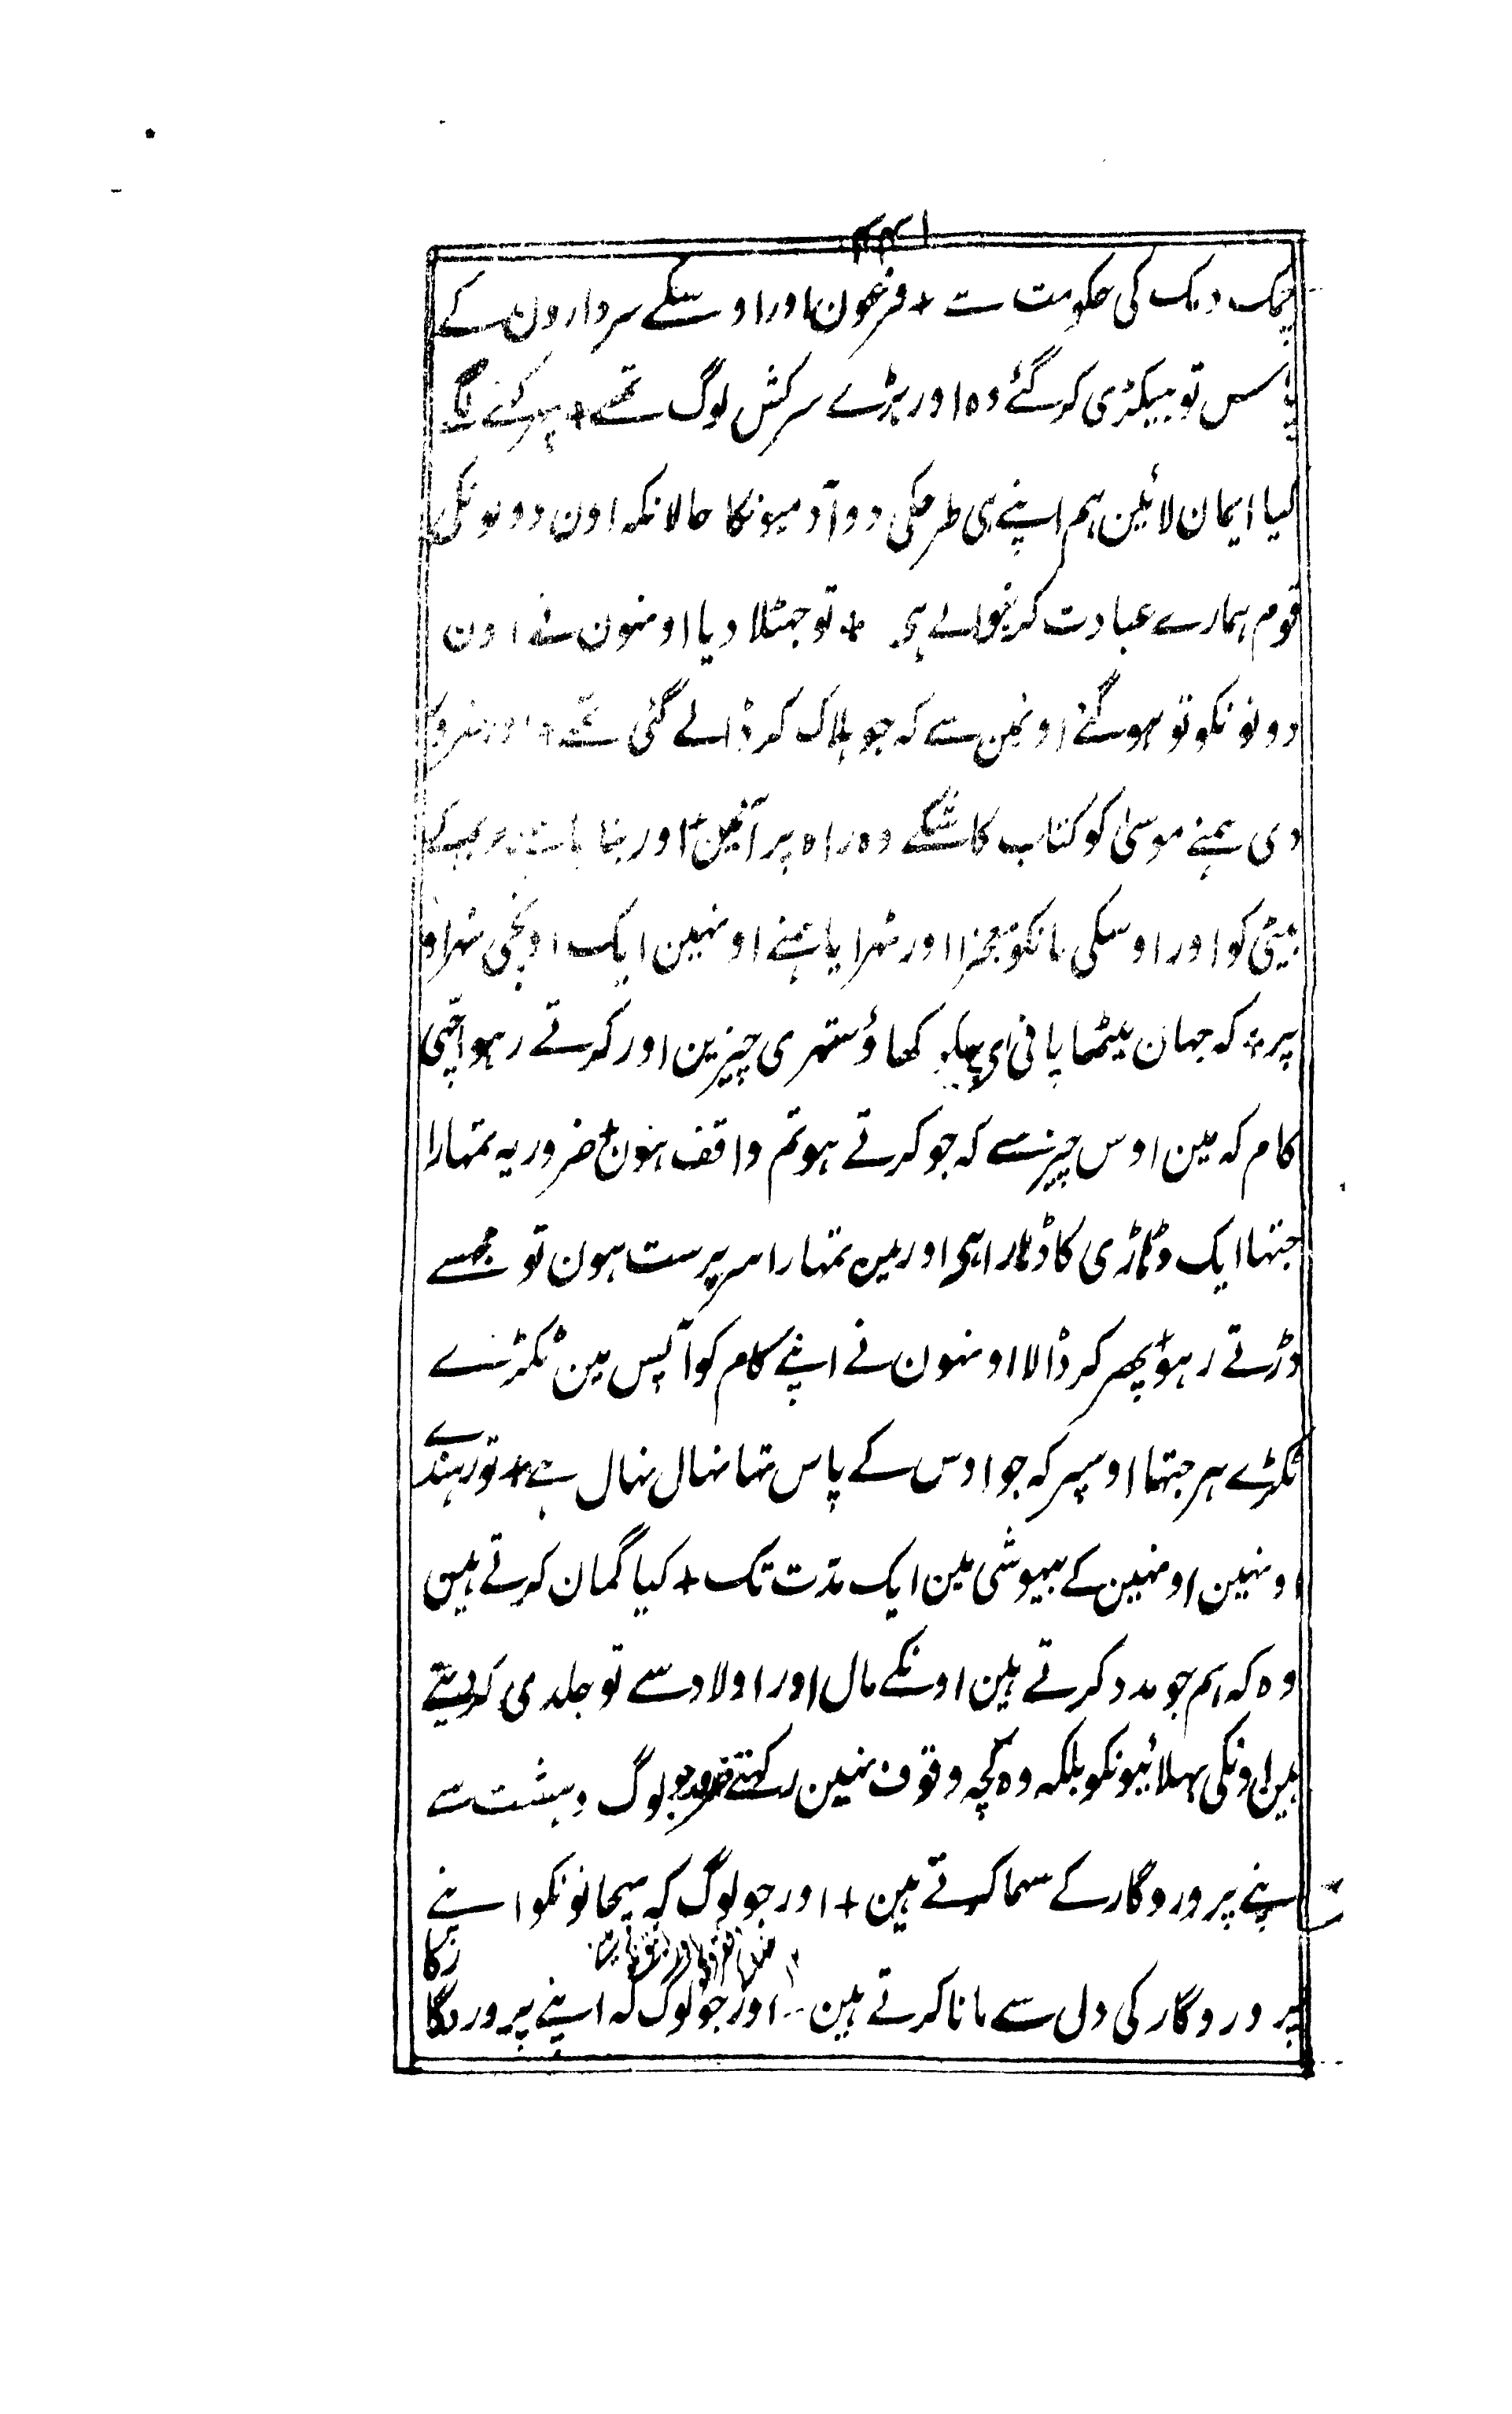 ۴۴۱
چمک دمک کی حکومت سے + فرعون اور اوسکے سردارون کے
پاس تو ہیکڑی کر گئے وہ اور بڑے سرکش لوگ تھے + پہر کہنے لگے
کیا ایمان لائین ہم اپنے ہی طرحکی دو آدمیونکا حالانکہ اون دونونکی
قوم ہمارے عبادت کرنیوالے ہی + تو جہٹلا دیا اونہون نے اون
دونونکو تو ہو گئے اونمین سے کہ جو ہلاک کر ڈالے گئی تھے + اور ضرور
دی ہمنے موسیٰ کو کتاب کاشکے وہ راہ پر آئین + اور بنا
بیٹی کو اور اوسکی مانکو معجزا اور ٹہرایا ہمنے اونہین ایک اونچی ٹہراو
پر + کہ جہان میٹھا پانی ہی کھاؤ ستہری چیزین اور کرتے رہو اچّہی
کام کہ مین اوس چیز سے کہ جو کرتے ہو تم واقف ہون + ضرور یہ تمہارا
جتہا ایک دہاڑی کا دہاڑا ہی اور مین تمہارا سرپرست ہون تو مجہسے
ڈرتے رہو + پھر کر ڈالا اونہون نے اپنے کام کو آپس مین ٹکڑے
ٹکڑے ہر جتہا اوسپر کہ جو اوس کے پاس تہا نہال نہال ہے + تو رہندے
اونہین اونہین کے بیہوشی مین ایک مدّت تک + کیا گمان کرتے ہین
وہ کہ ہم جو مدد کرتے ہین اونکے مال اور اولاد سے تو جلدی کر دیتے
ہین اونکی بہلائیونکو بلکہ وہ کچہ وقوف نہین رکہتے ضرور جو لوگ دہشت سے
اپنے پروردگار کے سہما کرتے ہین + اور جو لوگ کہ پیچانونکو اپنے
پروردگار کی دل سے مانا کرتے ہین اور جو لوگ کہ اپنے پروردگا